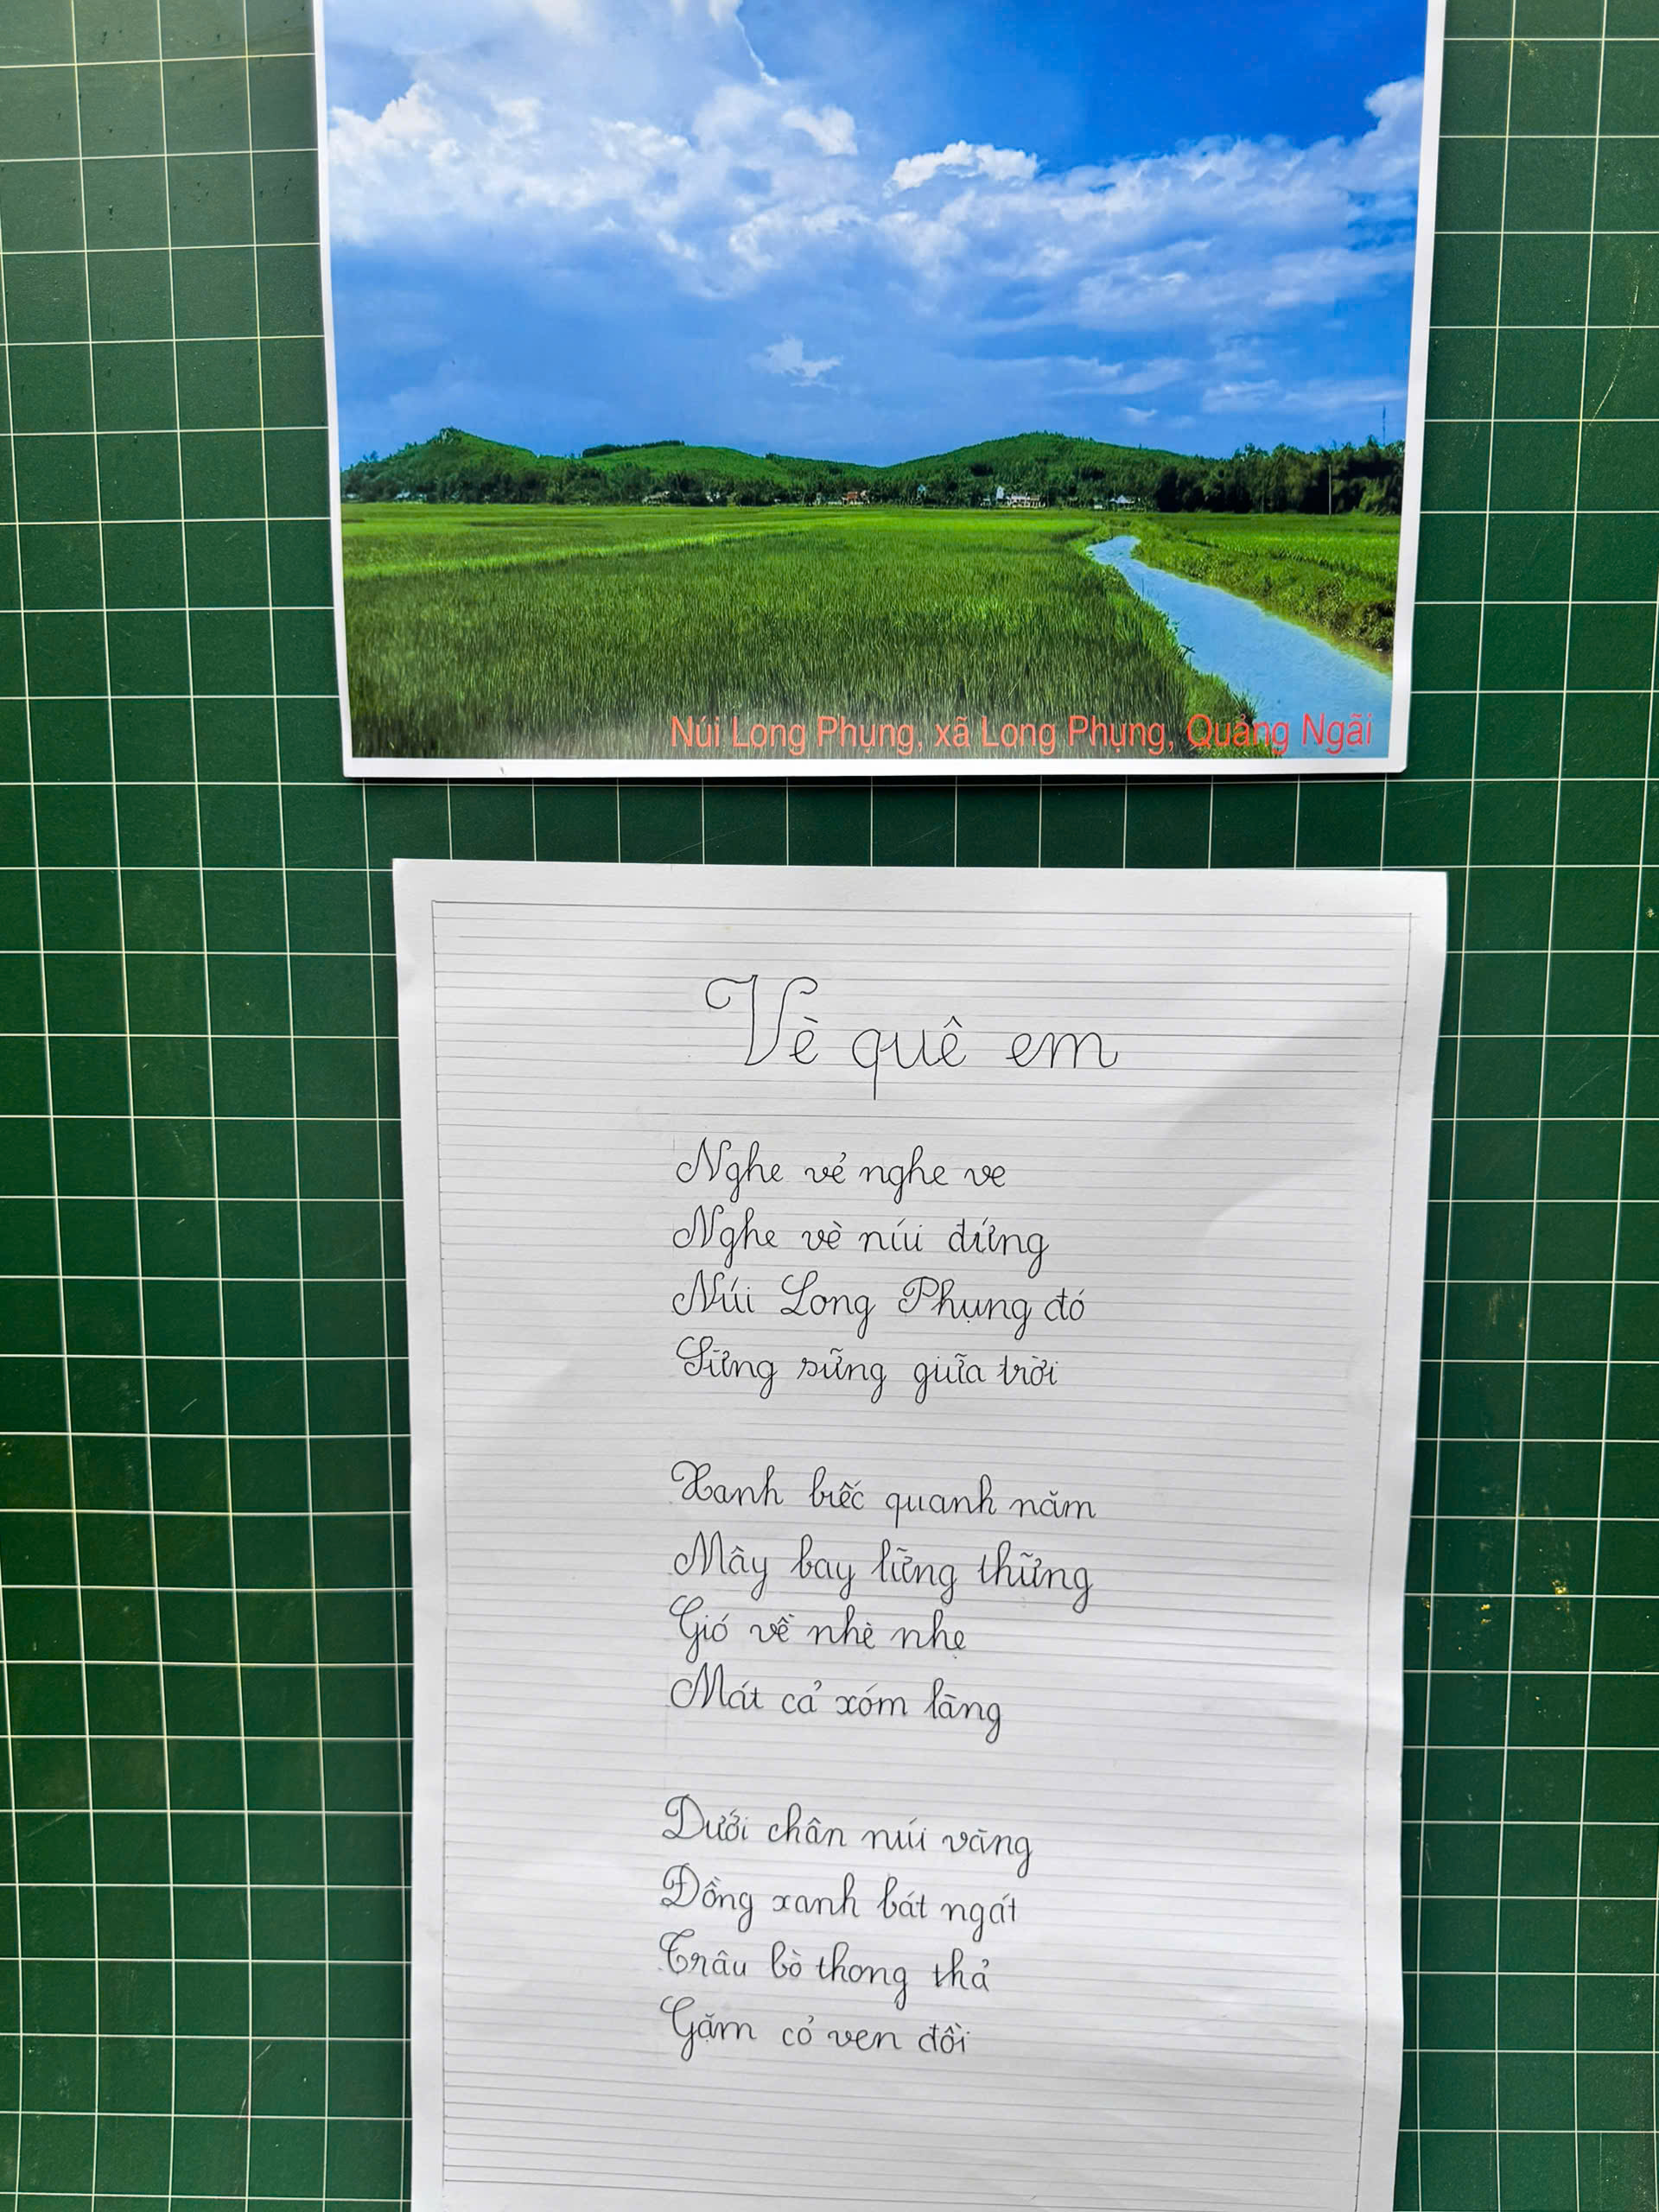 Núi Long Phụng, xã Long Phụng, Quảng Ngãi
Vè quê em
Nghe vẻ nghe ve
Nghe vè núi đứng
Núi Long Phụng đó
Sừng sững giữa trời
Xanh biếc quanh năm
Mây bay lững thững
Gió về nhè nhẹ
Mát cả xóm làng
Dưới chân núi vàng
Đồng xanh bát ngát
Trâu bò thong thả
Gặm cỏ ven đồi